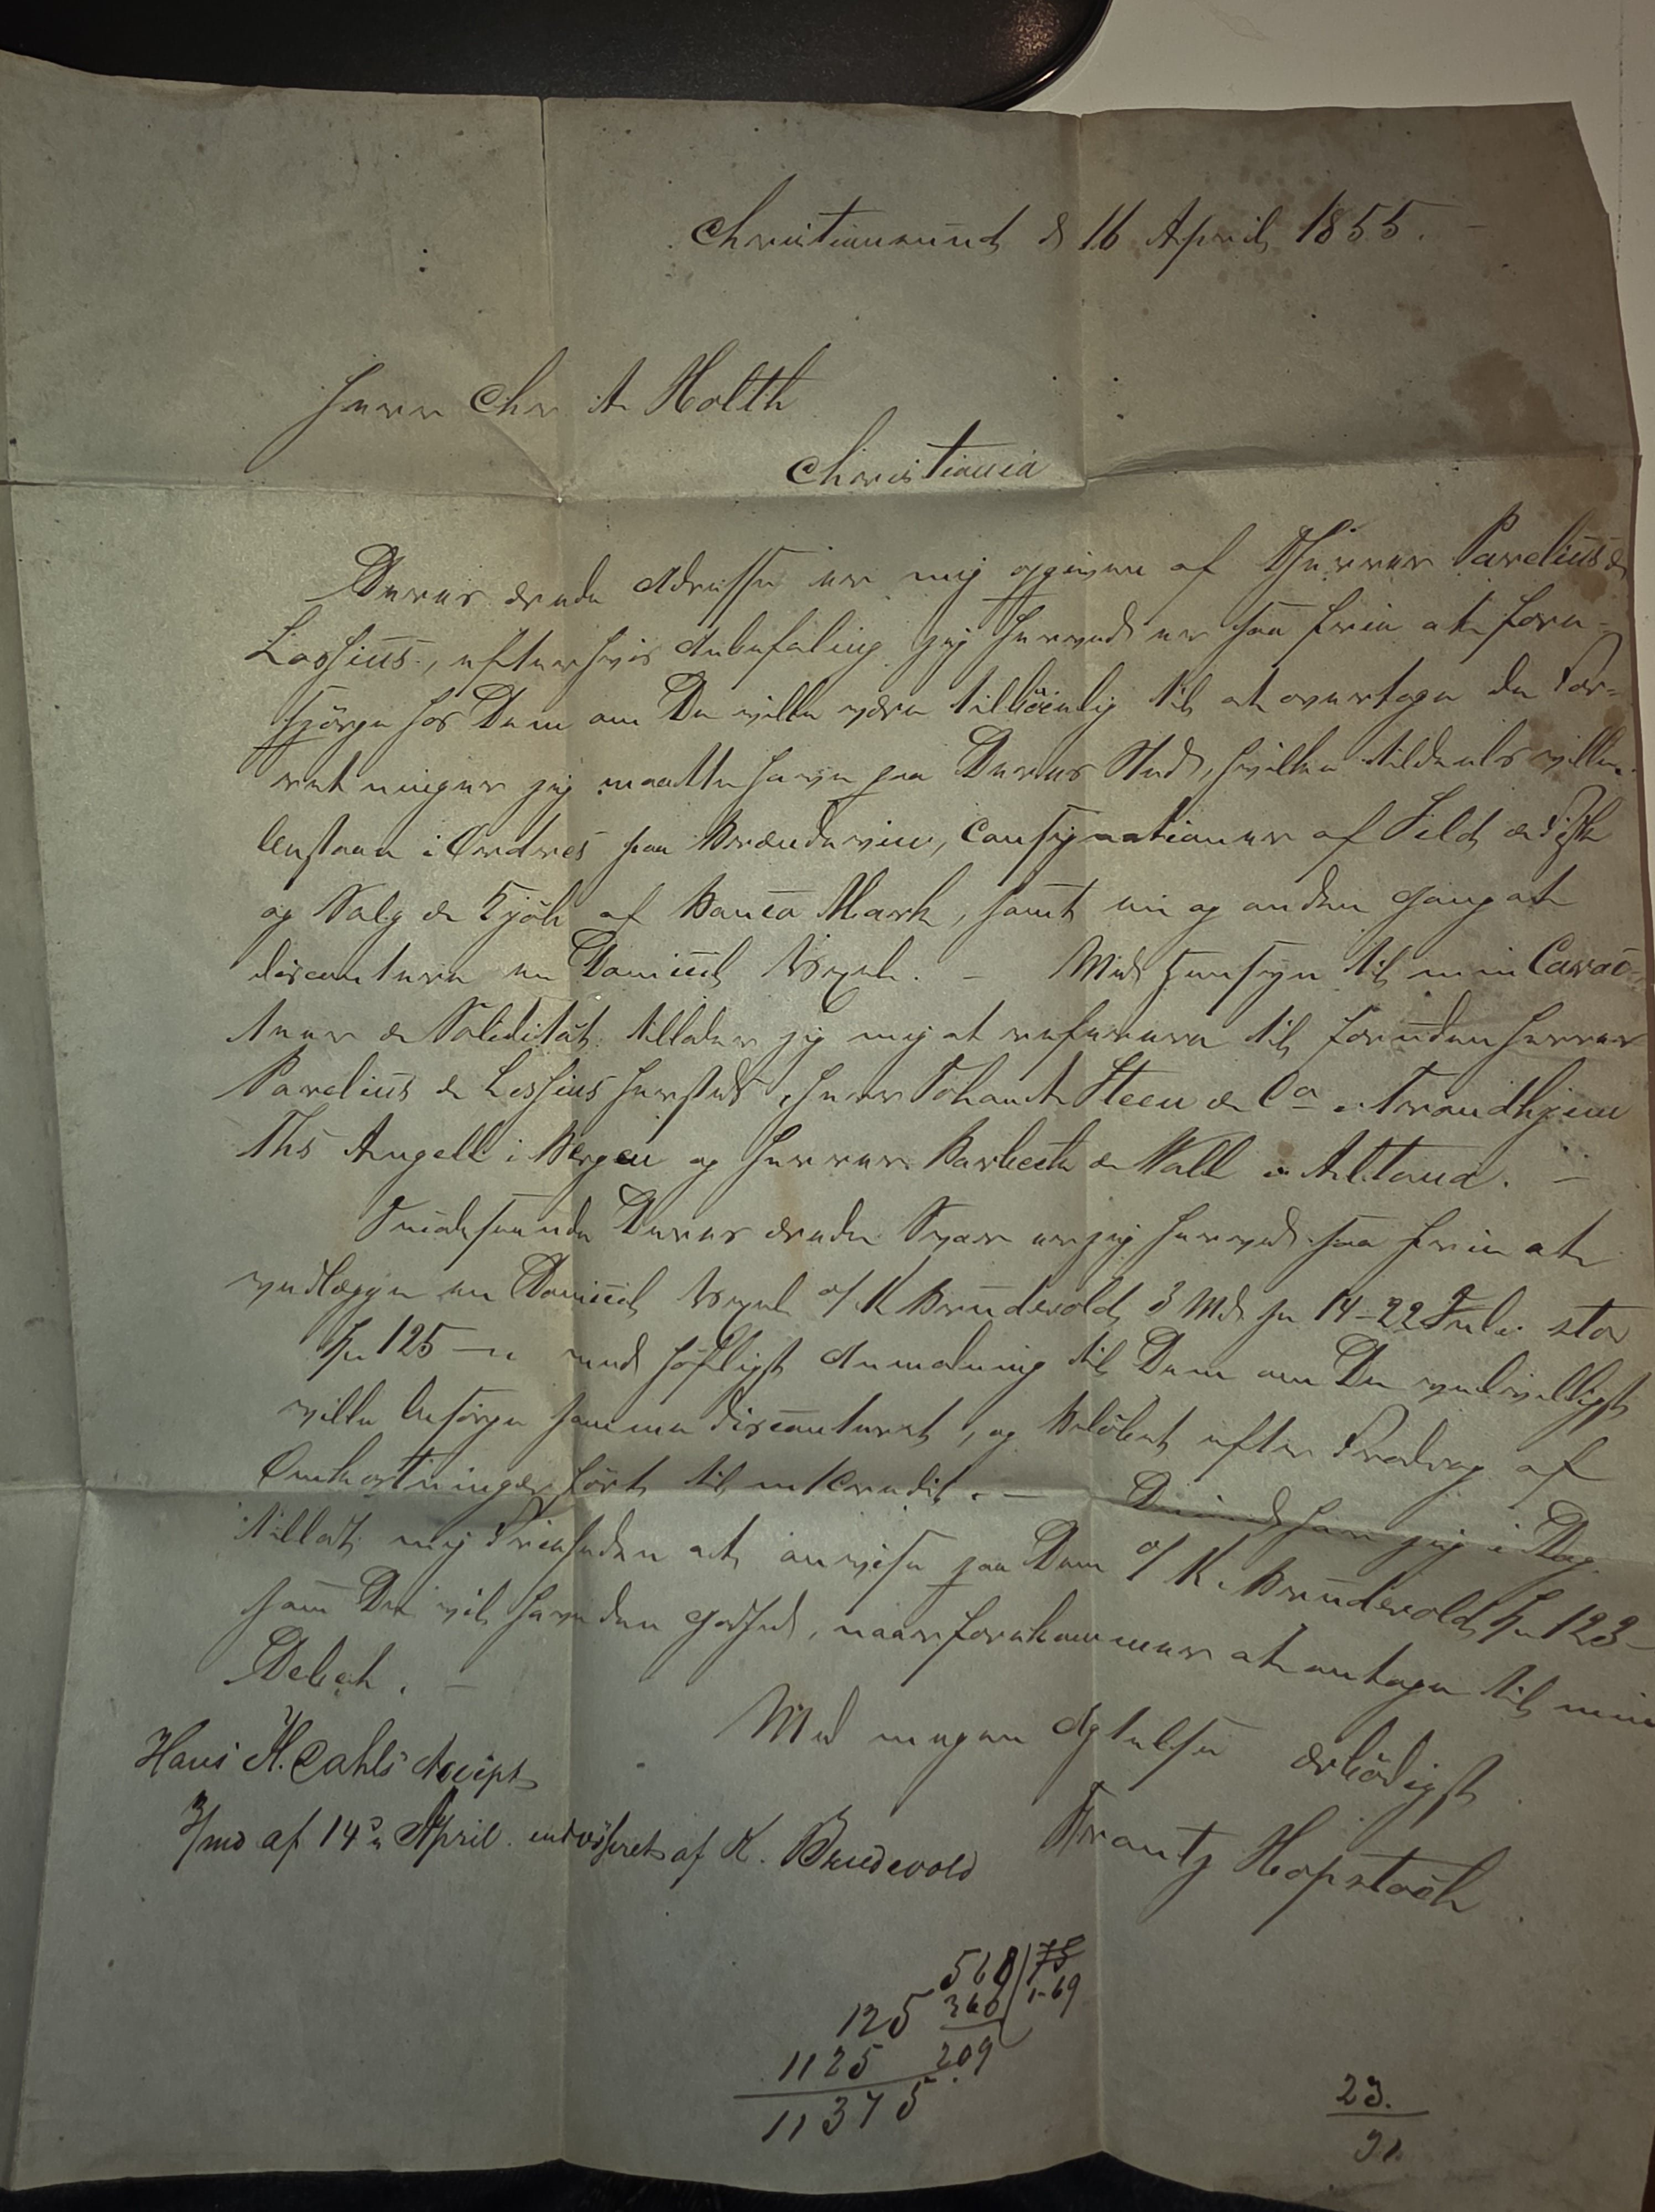 Christiansund d 16 April 1855.
Herr Chr A Holth
Christiania
Deres ærede Adresse er mig opgiven af Herrer Parelius &
Lossius, efter hvis Anbefaling jeg herved er saa frie at fore-
spörge hos Dem om De ville være tilböielig til at overtage de For-
retninger jeg maatte have paa Deres Sted, hvilke tildeels ville
bestaae i Ordres paa Brændeviin, Consignationer af Sild & Fisk
og Salg & Kjöb af Banco Mark, samt en og anden Gang at
discontere en Domicil Vexel. – Med Hensyn til min Carac-
teer & Soliditæt tillader jeg mig at referere til foruden Herrer
Parelius & Lossius hersteds, Herr Johan Steen & Co i Trondhjem
Ths Angell i Bergen og Herrer & Wall i Altona. –
Imödeseende Deres ærede Svar er jeg herved saa frie at
vedlægge en Domicil Vexel o/ K Brudevold, 3 Md pr 14-22 Juli stor
125 – med höfligst Anmodning til Dem om De velvilligst
ville besörge samme disconteret, og Belöbet efter Fradrag af
Omkostninger fört til m/Credit. – Derimod har jeg i Dag
tilladt mig Friheden at anvise paa Dem o/ K. Brudevold 123 –
som De vil have den Godhed, naar forekommer at antage til min
Debet. –
Med megen Agtelse ærbödigst
Frantz Hopstock
Hans H. Dahls Accept
3/md af 14de April endosseret af K. Brudevold
568 75
125 360 1-69
1125 209
11375
23.
91.